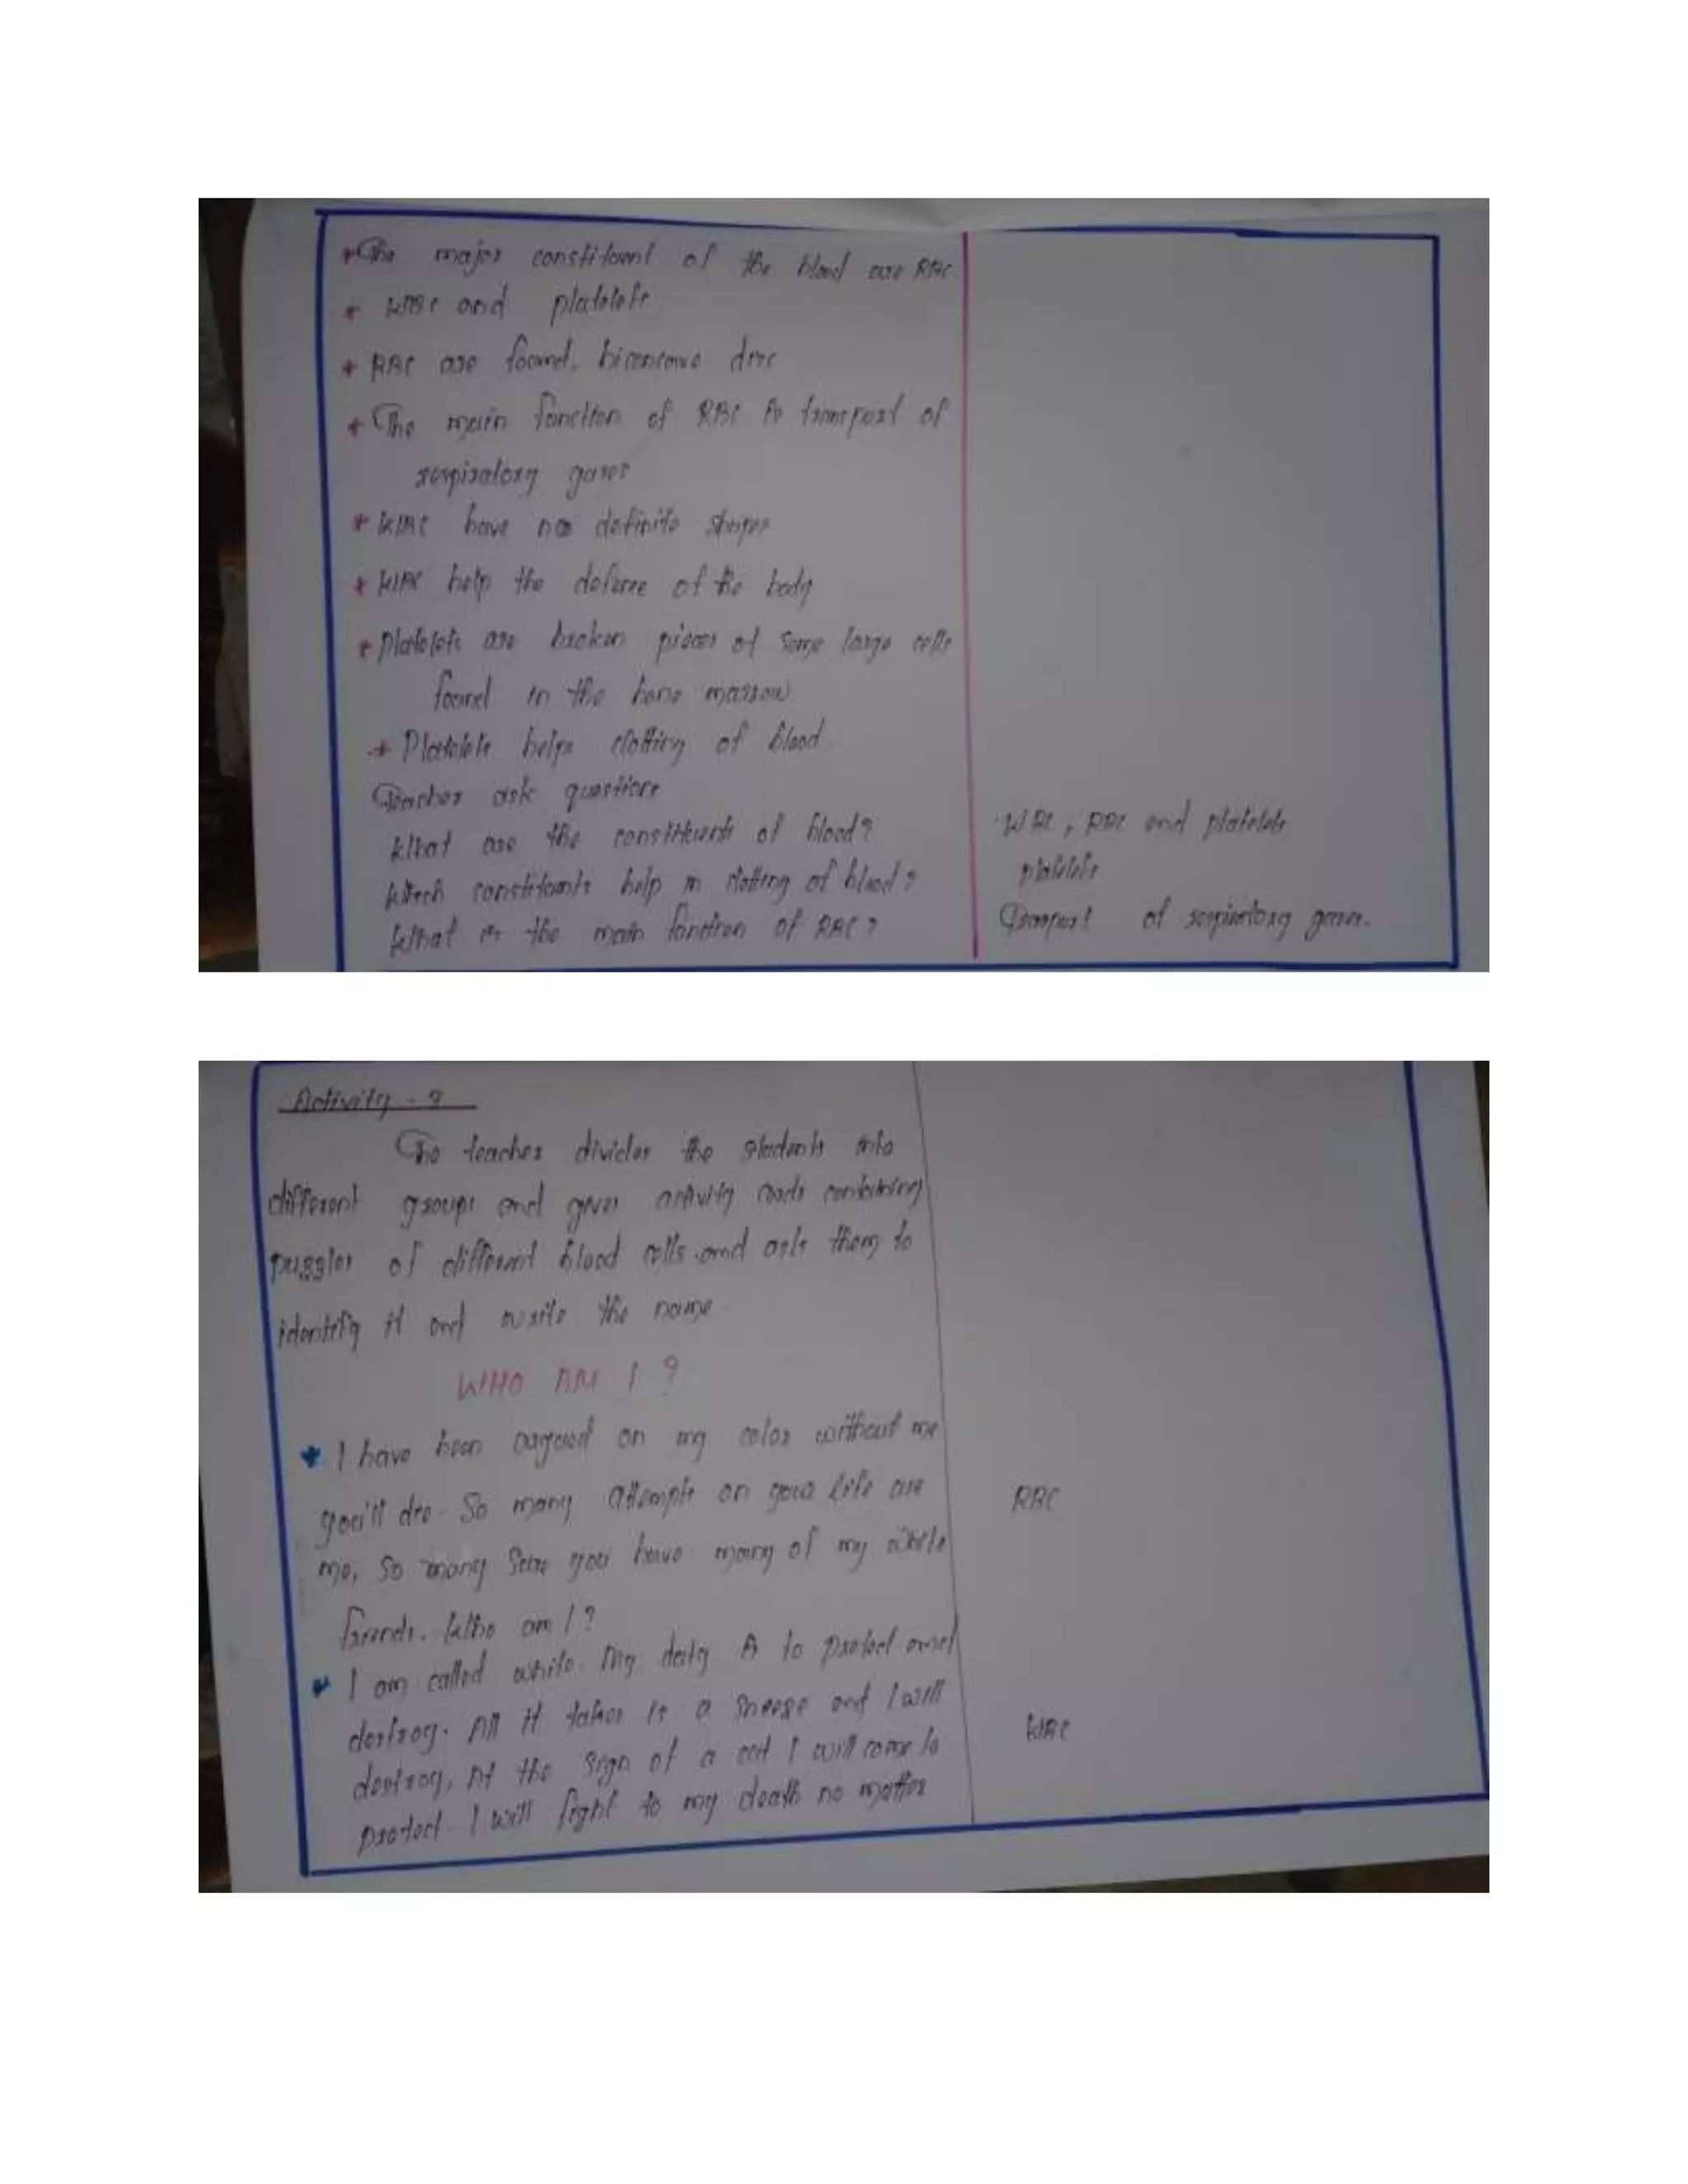 * The major constituent of the blood are RBC
* WBC and platelets
* RBC are found, biconcave disc
* The main function of RBC is transport of
respiratory gases
* WBC have no definite shape
* WBC help the defense of the body
* Platelets are broken pieces of some large cells
found in the bone marrow
* Platelets helps clotting of blood
Teacher ask questions
What are the constituents of blood?
WBC, RBC and platelets
Which constituents help in clotting of blood?
platelets
What is the main function of RBC?
Transport of respiratory gases.
Activity - 3
The teacher divides the students into
different groups and gives activity cards containing
puzzles of different blood cells and asks them to
identify it and write the name
WHO AM I ?
* I have been argued on my color without me
you'll die. So many attempts on your life are
RBC
me, so many sure you have many of my white
friends. Who am I?
* I am called white. My duty is to protect and
destroy. All it takes is a sneeze and I will
WBC
destroy, At the sign of a cut I will come to
protect. I will fight to my death no matter